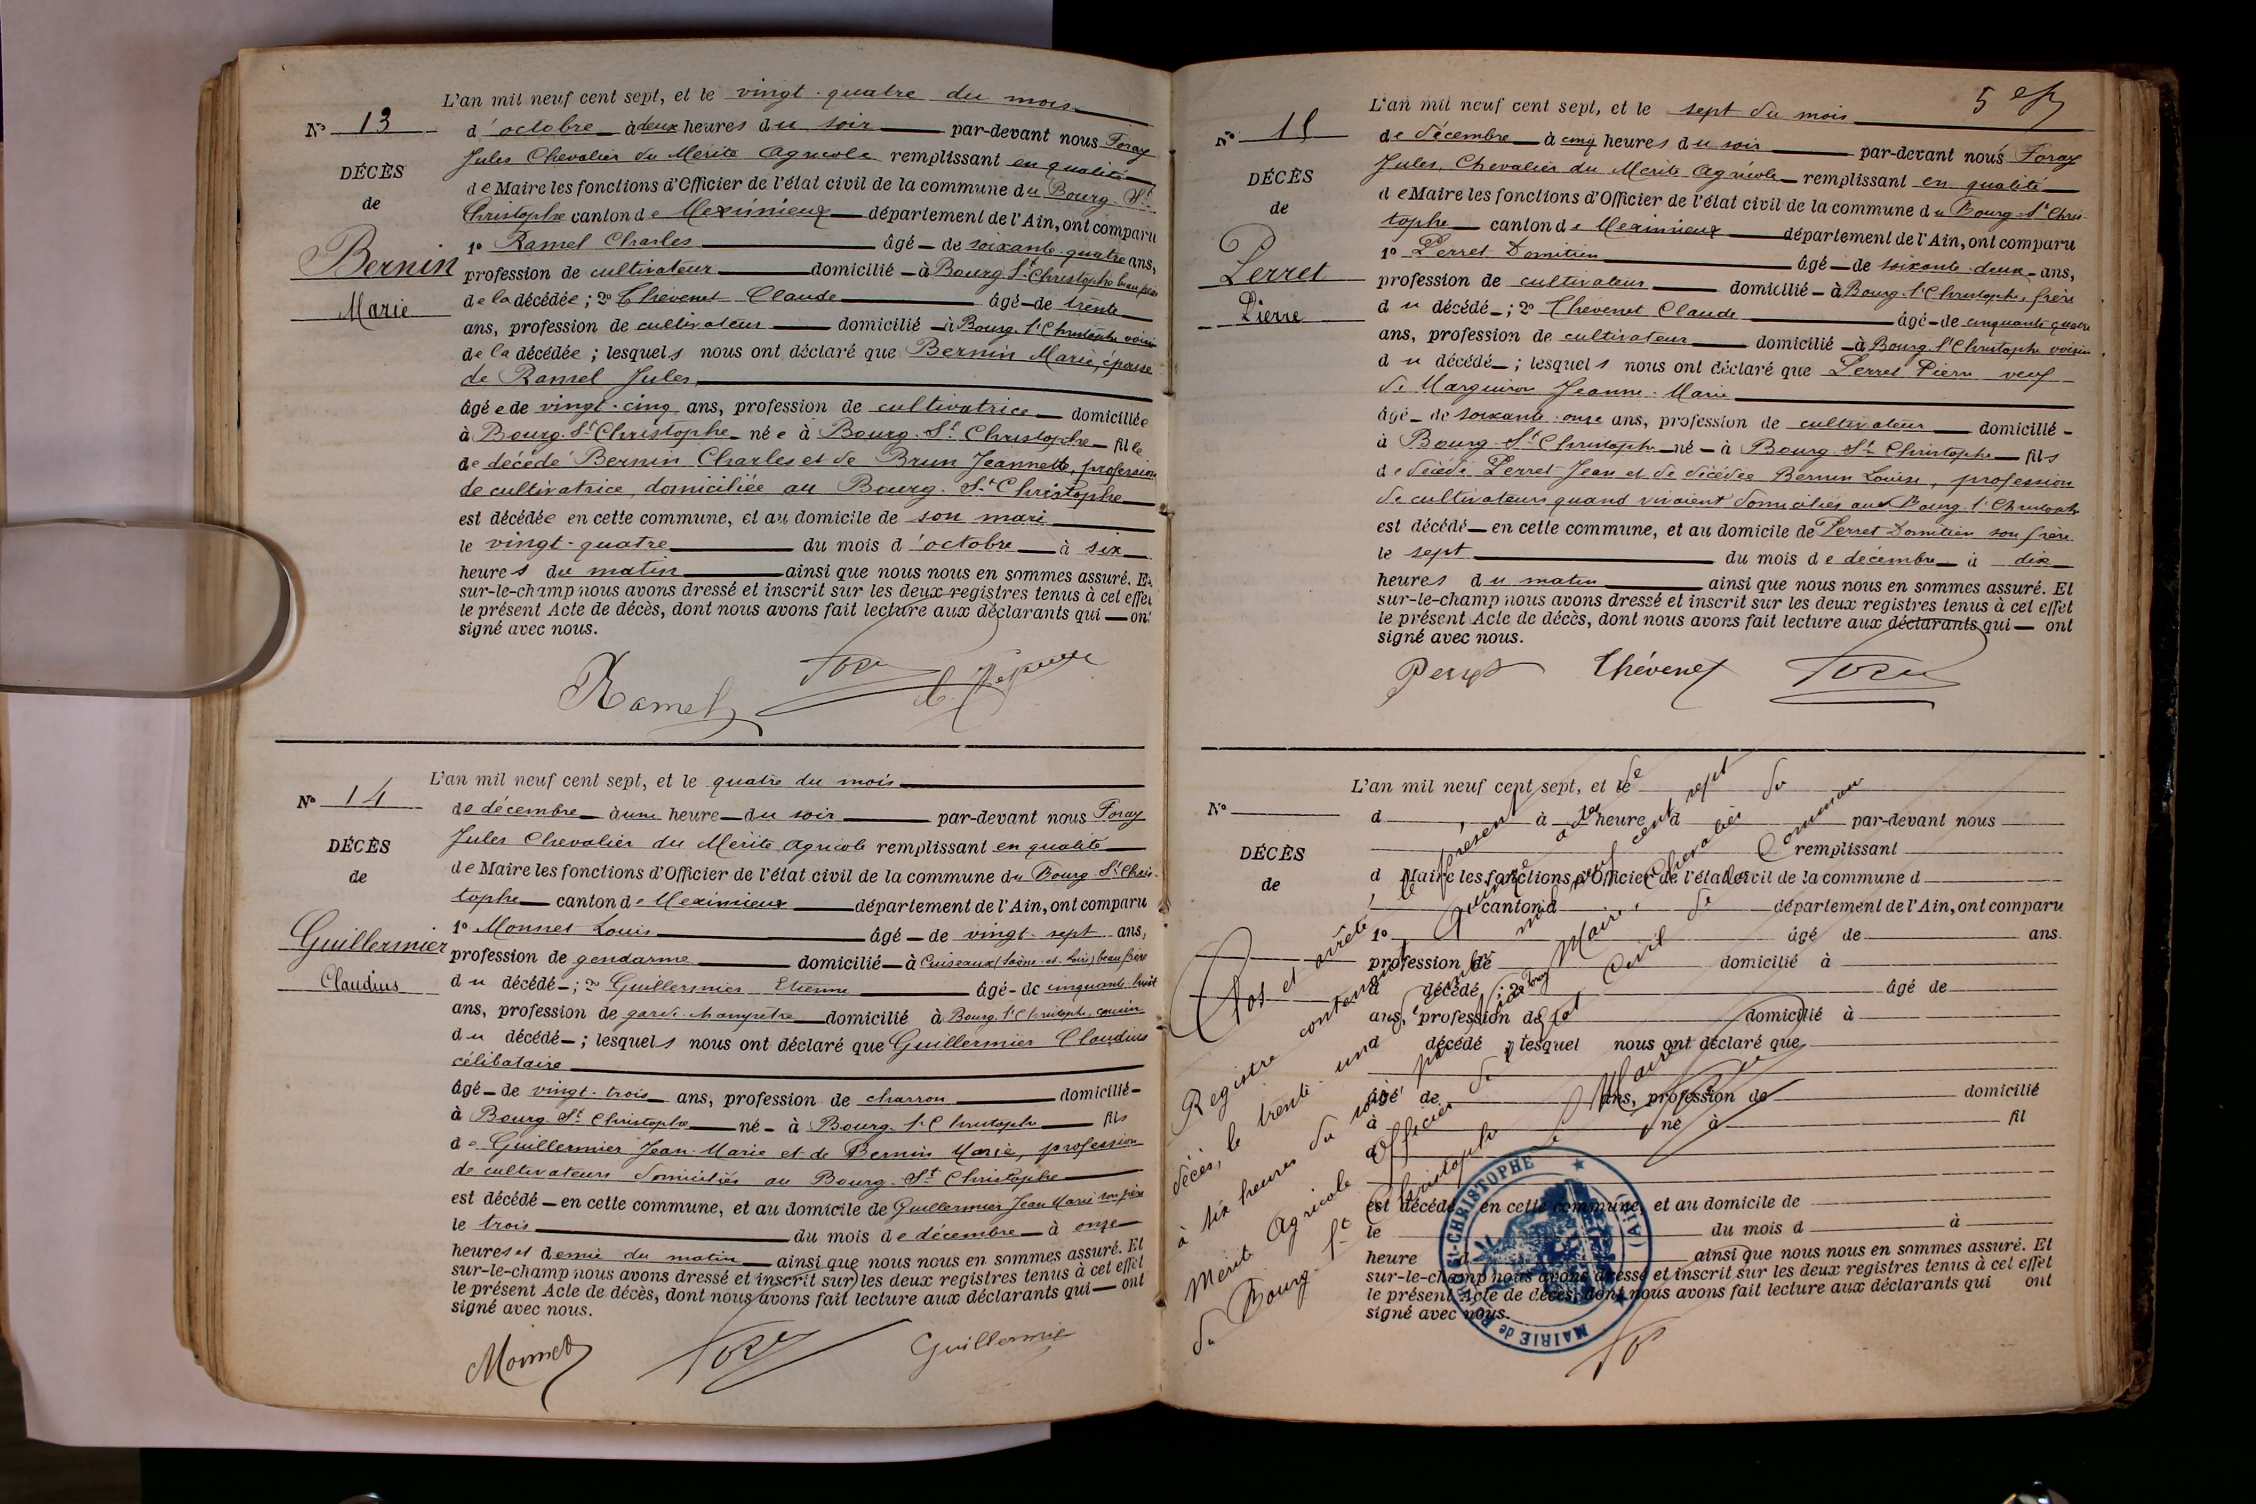 N° 13
DÉCÈS
de
Bernin
Marie
L'an mil neuf cent sept, et le vingt-quatre du mois
d'octobre à deux heures du soir par-devant nous Foray
Jules Chevalier du Mérite Agricole remplissant en qualité
de Maire les fonctions d'Officier de l'état civil de la commune du Bourg-St-
Christophe canton de Meximieux département de l'Ain, ont comparu
1° Ramel Charles âgé de soixante-quatre ans,
profession de cultivateur domicilié à Bourg St Christophe beau père
de la décédée ; 2° Thévenet Claude âgé de trente
ans, profession de cultivateur domicilié à Bourg St Christophe voisin
de la décédée ; lesquels nous ont déclaré que Bernin Marie, épouse
de Ramel Jules,
âgée de vingt-cinq ans, profession de cultivatrice domiciliée
à Bourg-St Christophe née à Bourg-St Christophe fille
de décédé Bernin Charles et de Brun Jeannette, profession
de cultivatrice, domiciliée au Bourg-St Christophe
est décédée en cette commune, et au domicile de son mari
le vingt-quatre du mois d'octobre à six
heures du matin ainsi que nous nous en sommes assuré. Et
sur-le-champ nous avons dressé et inscrit sur les deux registres tenus à cet effet
le présent Acte de décès, dont nous avons fait lecture aux déclarants qui ont
signé avec nous.
Ramel
N° 14
DÉCÈS
de
Guillermier
Claudius
L'an mil neuf cent sept, et le quatre du mois
de décembre à une heure du soir par-devant nous Foray
Jules Chevalier du Mérite Agricole remplissant en qualité
de Maire les fonctions d'Officier de l'état civil de la commune du Bourg-St Chris-
tophe canton de Meximieux département de l'Ain, ont comparu
1° Monnet Louis âgé de vingt-sept ans,
profession de gendarme domicilié à Cuiseaux (Saône-et-Loire) beau frère
du décédé ; 2° Guillermier Etienne âgé de cinquante-huit
ans, profession de garde-champêtre domicilié à Bourg St Christophe, cousin
du décédé ; lesquels nous ont déclaré que Guillermier Claudius
célibataire
âgé de vingt-trois ans, profession de charron domicilié
à Bourg-St Christophe né à Bourg-St Christophe fils
de Guillermier Jean-Marie et de Bernin Marie, profession
de cultivateurs domiciliés au Bourg-St Christophe
est décédé en cette commune, et au domicile de Guillermier Jean Marie son père
le trois du mois de décembre à onze
heures et demie du matin ainsi que nous nous en sommes assuré. Et
sur-le-champ nous avons dressé et inscrit sur les deux registres tenus à cet effet
le présent Acte de décès, dont nous avons fait lecture aux déclarants qui ont
signé avec nous.
Monnet Guillermier
5
N° 15
DÉCÈS
de
Perret
Pierre
L'an mil neuf cent sept, et le sept du mois
de décembre à cinq heures du soir par-devant nous Foray
Jules, Chevalier du Mérite Agricole remplissant en qualité
de Maire les fonctions d'Officier de l'état civil de la commune du Bourg-St Chris-
tophe canton de Meximieux département de l'Ain, ont comparu
1° Perret Domitien âgé de soixante-deux ans,
profession de cultivateur domicilié à Bourg-St Christophe, frère
du décédé ; 2° Thévenet Claude âgé de cinquante quatre
ans, profession de cultivateur domicilié à Bourg St Christophe voisin
du décédé ; lesquels nous ont déclaré que Perret Pierre veuf
de Jeanne-Marie
âgé de soixante-onze ans, profession de cultivateur domicilié
à Bourg-St Christophe né à Bourg-St Christophe fils
de décédé Perret Jean et de décédée Bernin Louise, profession
de cultivateurs quand vivaient domiciliés au Bourg-St Christophe
est décédé en cette commune, et au domicile de Perret Domitien son frère
le sept du mois de décembre à dix
heures du matin ainsi que nous nous en sommes assuré. Et
sur-le-champ nous avons dressé et inscrit sur les deux registres tenus à cet effet
le présent Acte de décès, dont nous avons fait lecture aux déclarants qui ont
signé avec nous.
Perret Thévenet
N°
DÉCÈS
de
L'an mil neuf cent sept, et le
d à heure d par-devant nous
remplissant
d Maire les fonctions d'Officier de l'état civil de la commune d
canton d département de l'Ain, ont comparu
1° âgé de ans.
profession de domicilié à
d décédé ; 2° âgé de
ans, profession de domicilié à
d décédé ; lesquel nous ont déclaré que
âgé de ans, profession de domicilié
à né à fil
d
est décédé en cette commune, et au domicile de
le du mois d à
heure d ainsi que nous nous en sommes assuré. Et
sur-le-champ nous avons dressé et inscrit sur les deux registres tenus à cet effet
le présent Acte de décès, dont nous avons fait lecture aux déclarants qui ont
signé avec nous.
Clos et arrêté, le présent
Registre contenant quinze actes de
décès, le trente-un décembre mil neuf cent sept
à six heures du soir, par Maire, Chevalier du
Mérite Agricole Officier de l'état Civil de la Commune
du Bourg-St Christophe
Le Maire
MAIRIE de BOURG-St-CHRISTOPHE (AIN)